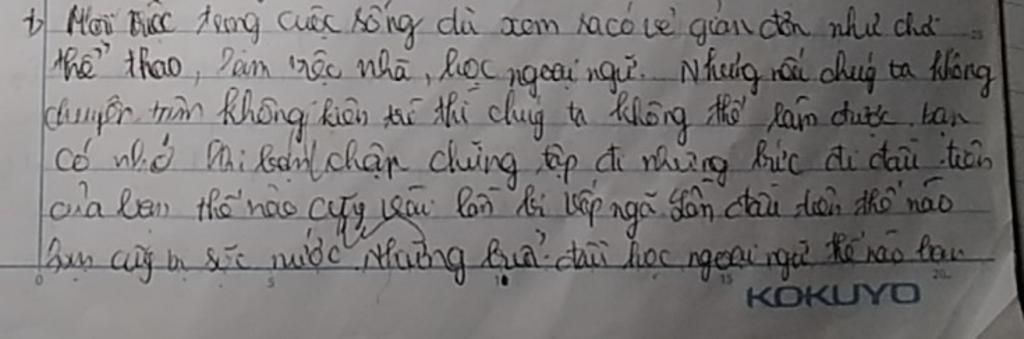 Mỗi việc trong cuộc sống dù xem ra có vẻ giản đơn như chơi
thể thao, làm việc nhà, học ngoại ngữ. Nhưng nếu chúng ta không
chuyên tâm không kiên trì thì chúng ta không thể làm được bạn
có nhớ khi bạn chập chững tập đi những bước đi đầu tiên
của bạn thế nào cũng vài lần bị vấp ngã lần đầu tiên thế nào
bạn cũng bị sặc nước. Những buổi đầu học ngoại ngữ thế nào bạn
0 5 10 15 20
KOKUYO